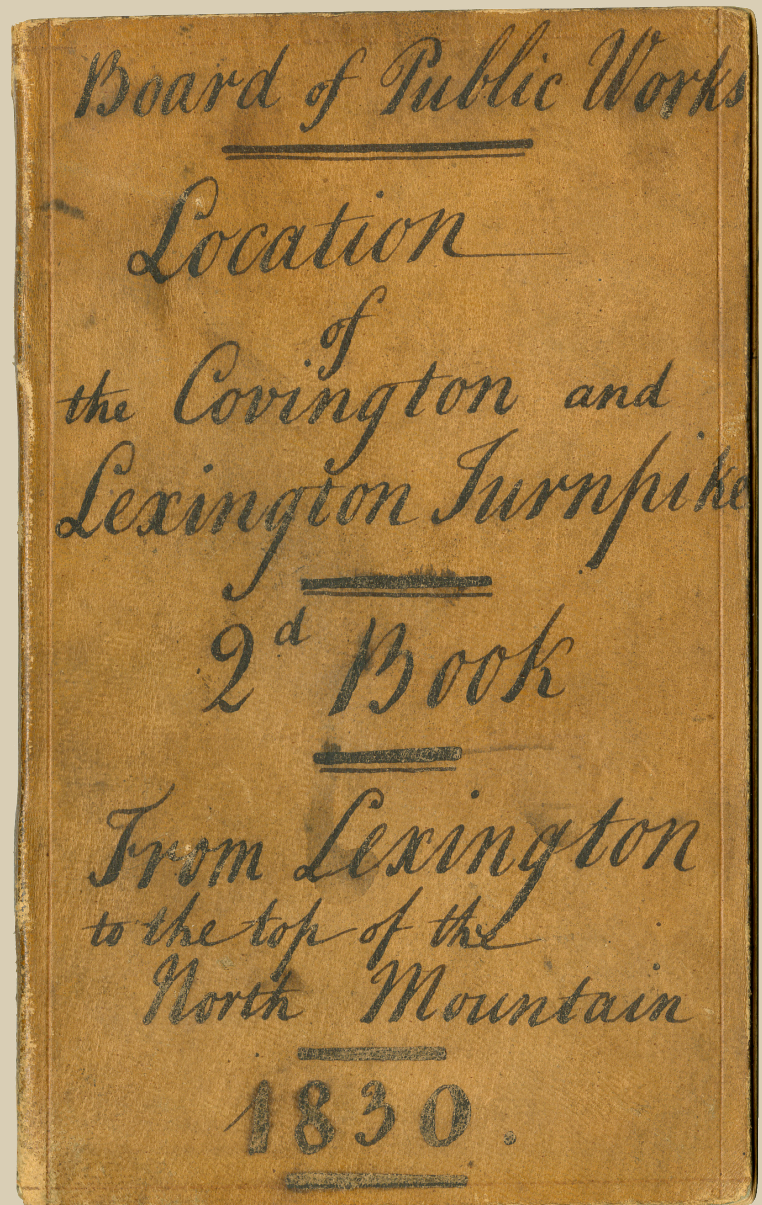 Board of Public Works
Location
of
the Covington and
Lexington Turnpike
2d Book
From Lexington
to the top of the
North Mountain
1830.